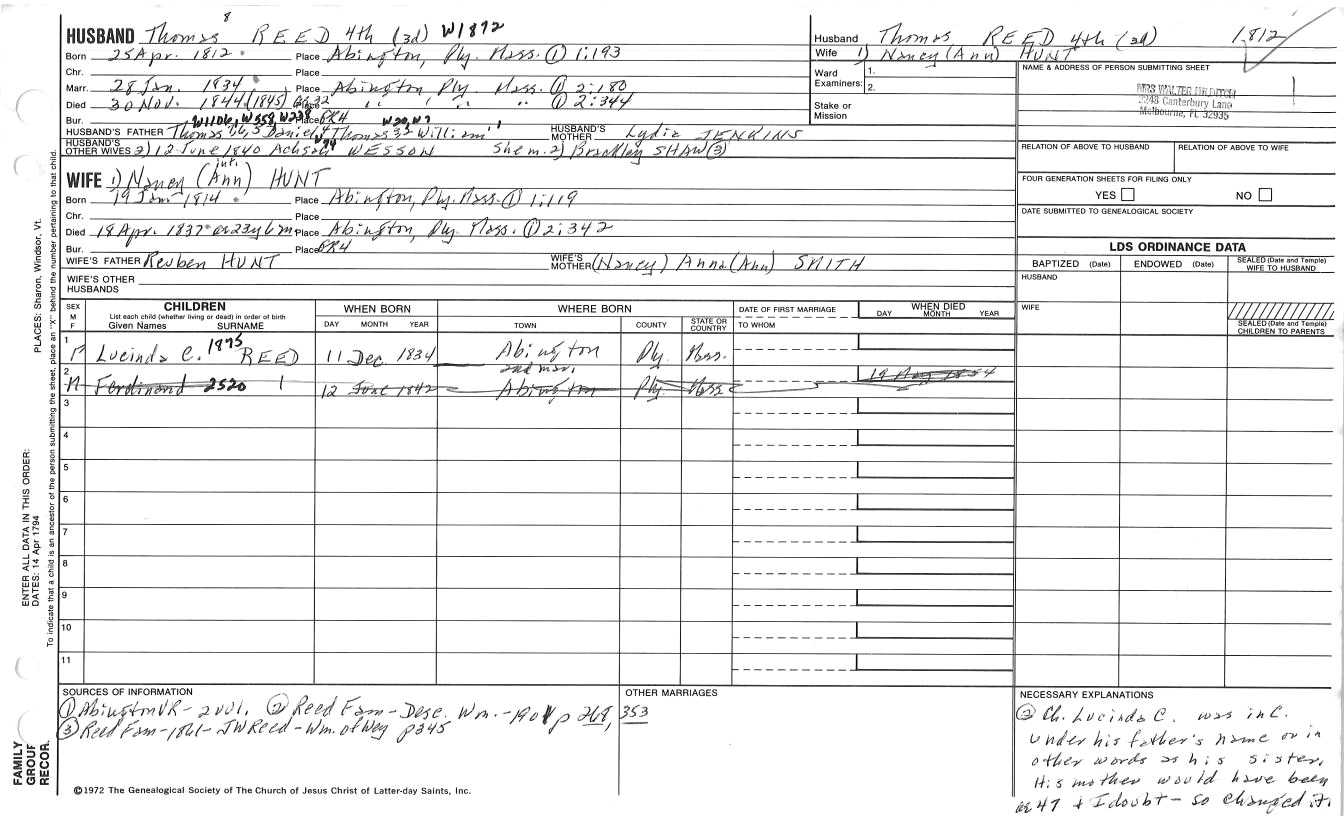 8
HUSBAND Thomas REED 4th (3d) W1872
Born 25 Apr. 1812 Place Abington, Ply. Mass. ① 1:193
Chr. Place
Marr. 28 Jan. 1834 Place Abington Ply Mass. ① 2:180
Died 30 Nov. 1844 (1845) ae 32 Place " " " ① 2:344
Bur. Place PR4
W1106, W558, W238 W20, W7
HUSBAND'S FATHER Thomas 6, 5 Daniel 4 Thomas 3 2 William 1 HUSBAND'S MOTHER Lydia JENKINS
HUSBAND'S OTHER WIVES 2) 12 June 1840 Achsah WESSON She m. 2) Brackley SHAW (3)
int.
WIFE 1) Nancy (Ann) HUNT
Born 19 Jan 1814 Place Abington, Ply. Mass. ① 1:119
Chr. Place
Died 19 Apr. 1837 ae 23y 6m Place Abington, Ply Mass. ① 2:342
Bur. Place PR4
WIFE'S FATHER Reuben HUNT WIFE'S MOTHER (Nancy) Anna (Ann) SMITH
WIFE'S OTHER HUSBANDS
Husband Thomas REED 4th (3d) 1812
Wife 1) Nancy (Ann) HUNT
Ward Examiners: 1.
2.
Stake or Mission
NAME & ADDRESS OF PERSON SUBMITTING SHEET
MRS WALTER
3248 Canterbury Lane
Melbourne, FL 32935
1
RELATION OF ABOVE TO HUSBAND RELATION OF ABOVE TO WIFE
FOUR GENERATION SHEETS FOR FILING ONLY
YES NO
DATE SUBMITTED TO GENEALOGICAL SOCIETY
LDS ORDINANCE DATA
BAPTIZED (Date) ENDOWED (Date) SEALED (Date and Temple) WIFE TO HUSBAND
HUSBAND
WIFE
SEALED (Date and Temple) CHILDREN TO PARENTS
SEX M F CHILDREN WHEN BORN WHERE BORN DATE OF FIRST MARRIAGE WHEN DIED
List each child (whether living or dead) in order of birth
Given Names SURNAME DAY MONTH YEAR TOWN COUNTY STATE OR COUNTRY TO WHOM DAY MONTH YEAR
1 F Lucinda C. 1875 REED 11 Dec 1834 Abington Ply. Mass.
2nd mar.
2 M Ferdinand 2520 1 12 June 1842 Abington Ply Mass 19 Aug 1854
3
4
5
6
7
8
9
10
11
SOURCES OF INFORMATION
① Abington VR - 2 vol. ② Reed Fam - Desc. Wm. - 1901 p 268, 353
③ Reed Fam - 1861 - JW Reed - Wm. of Wey p345
OTHER MARRIAGES
NECESSARY EXPLANATIONS
② Ch. Lucinda C. was inc.
under his father's name or in
other words as his sister.
His mother would have been
ae 47 & I doubt - so changed it.
©1972 The Genealogical Society of The Church of Jesus Christ of Latter-day Saints, Inc.
FAMILY GROUP RECOR.
ENTER ALL DATA IN THIS ORDER:
DATES: 14 Apr 1794
PLACES: Sharon, Windsor, Vt.
To indicate that a child is an ancestor of the person submitting the sheet, place an "X" behind the number pertaining to that child.